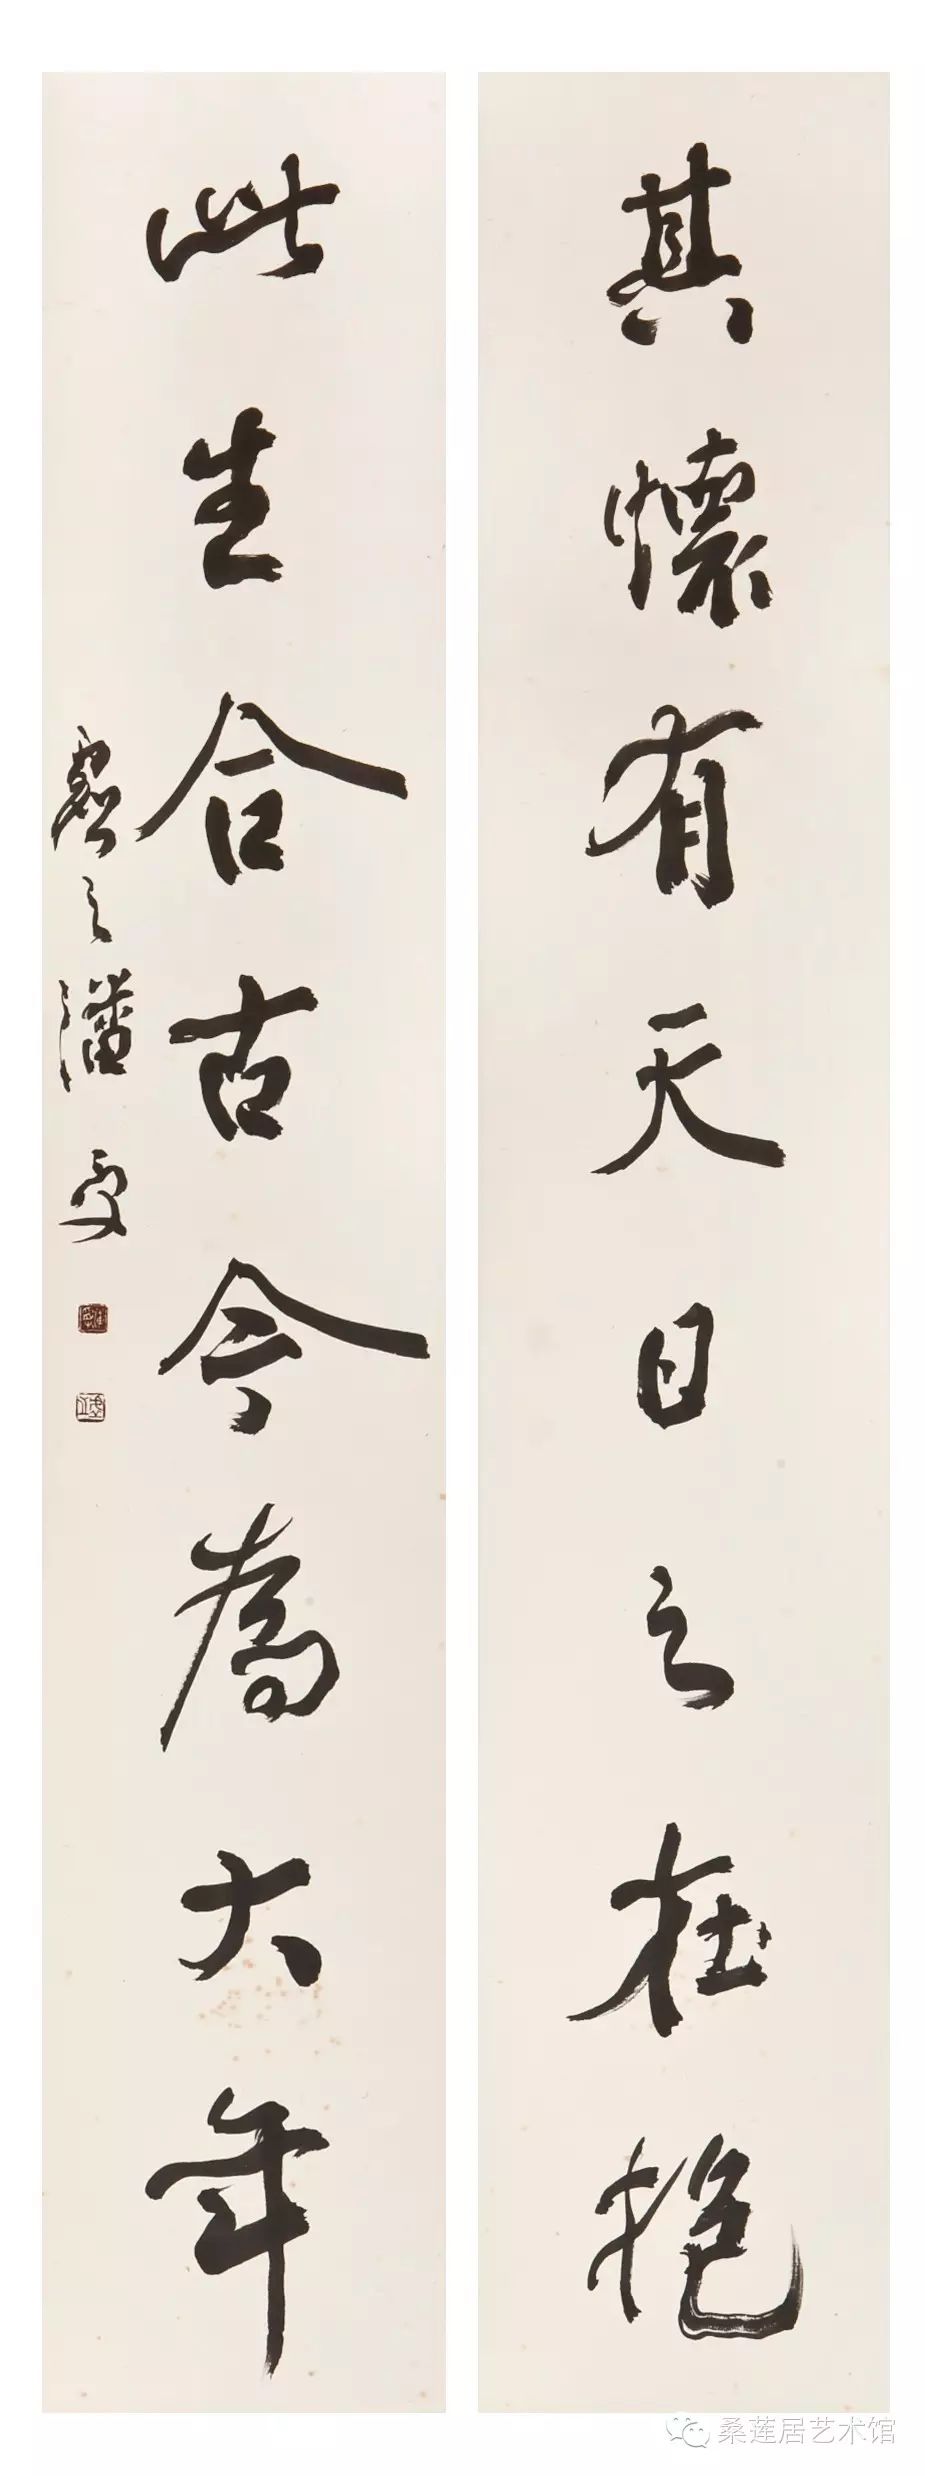 其懷有天日之在抱
此生合古今為大年
虛之潘受
桑莲居艺术馆